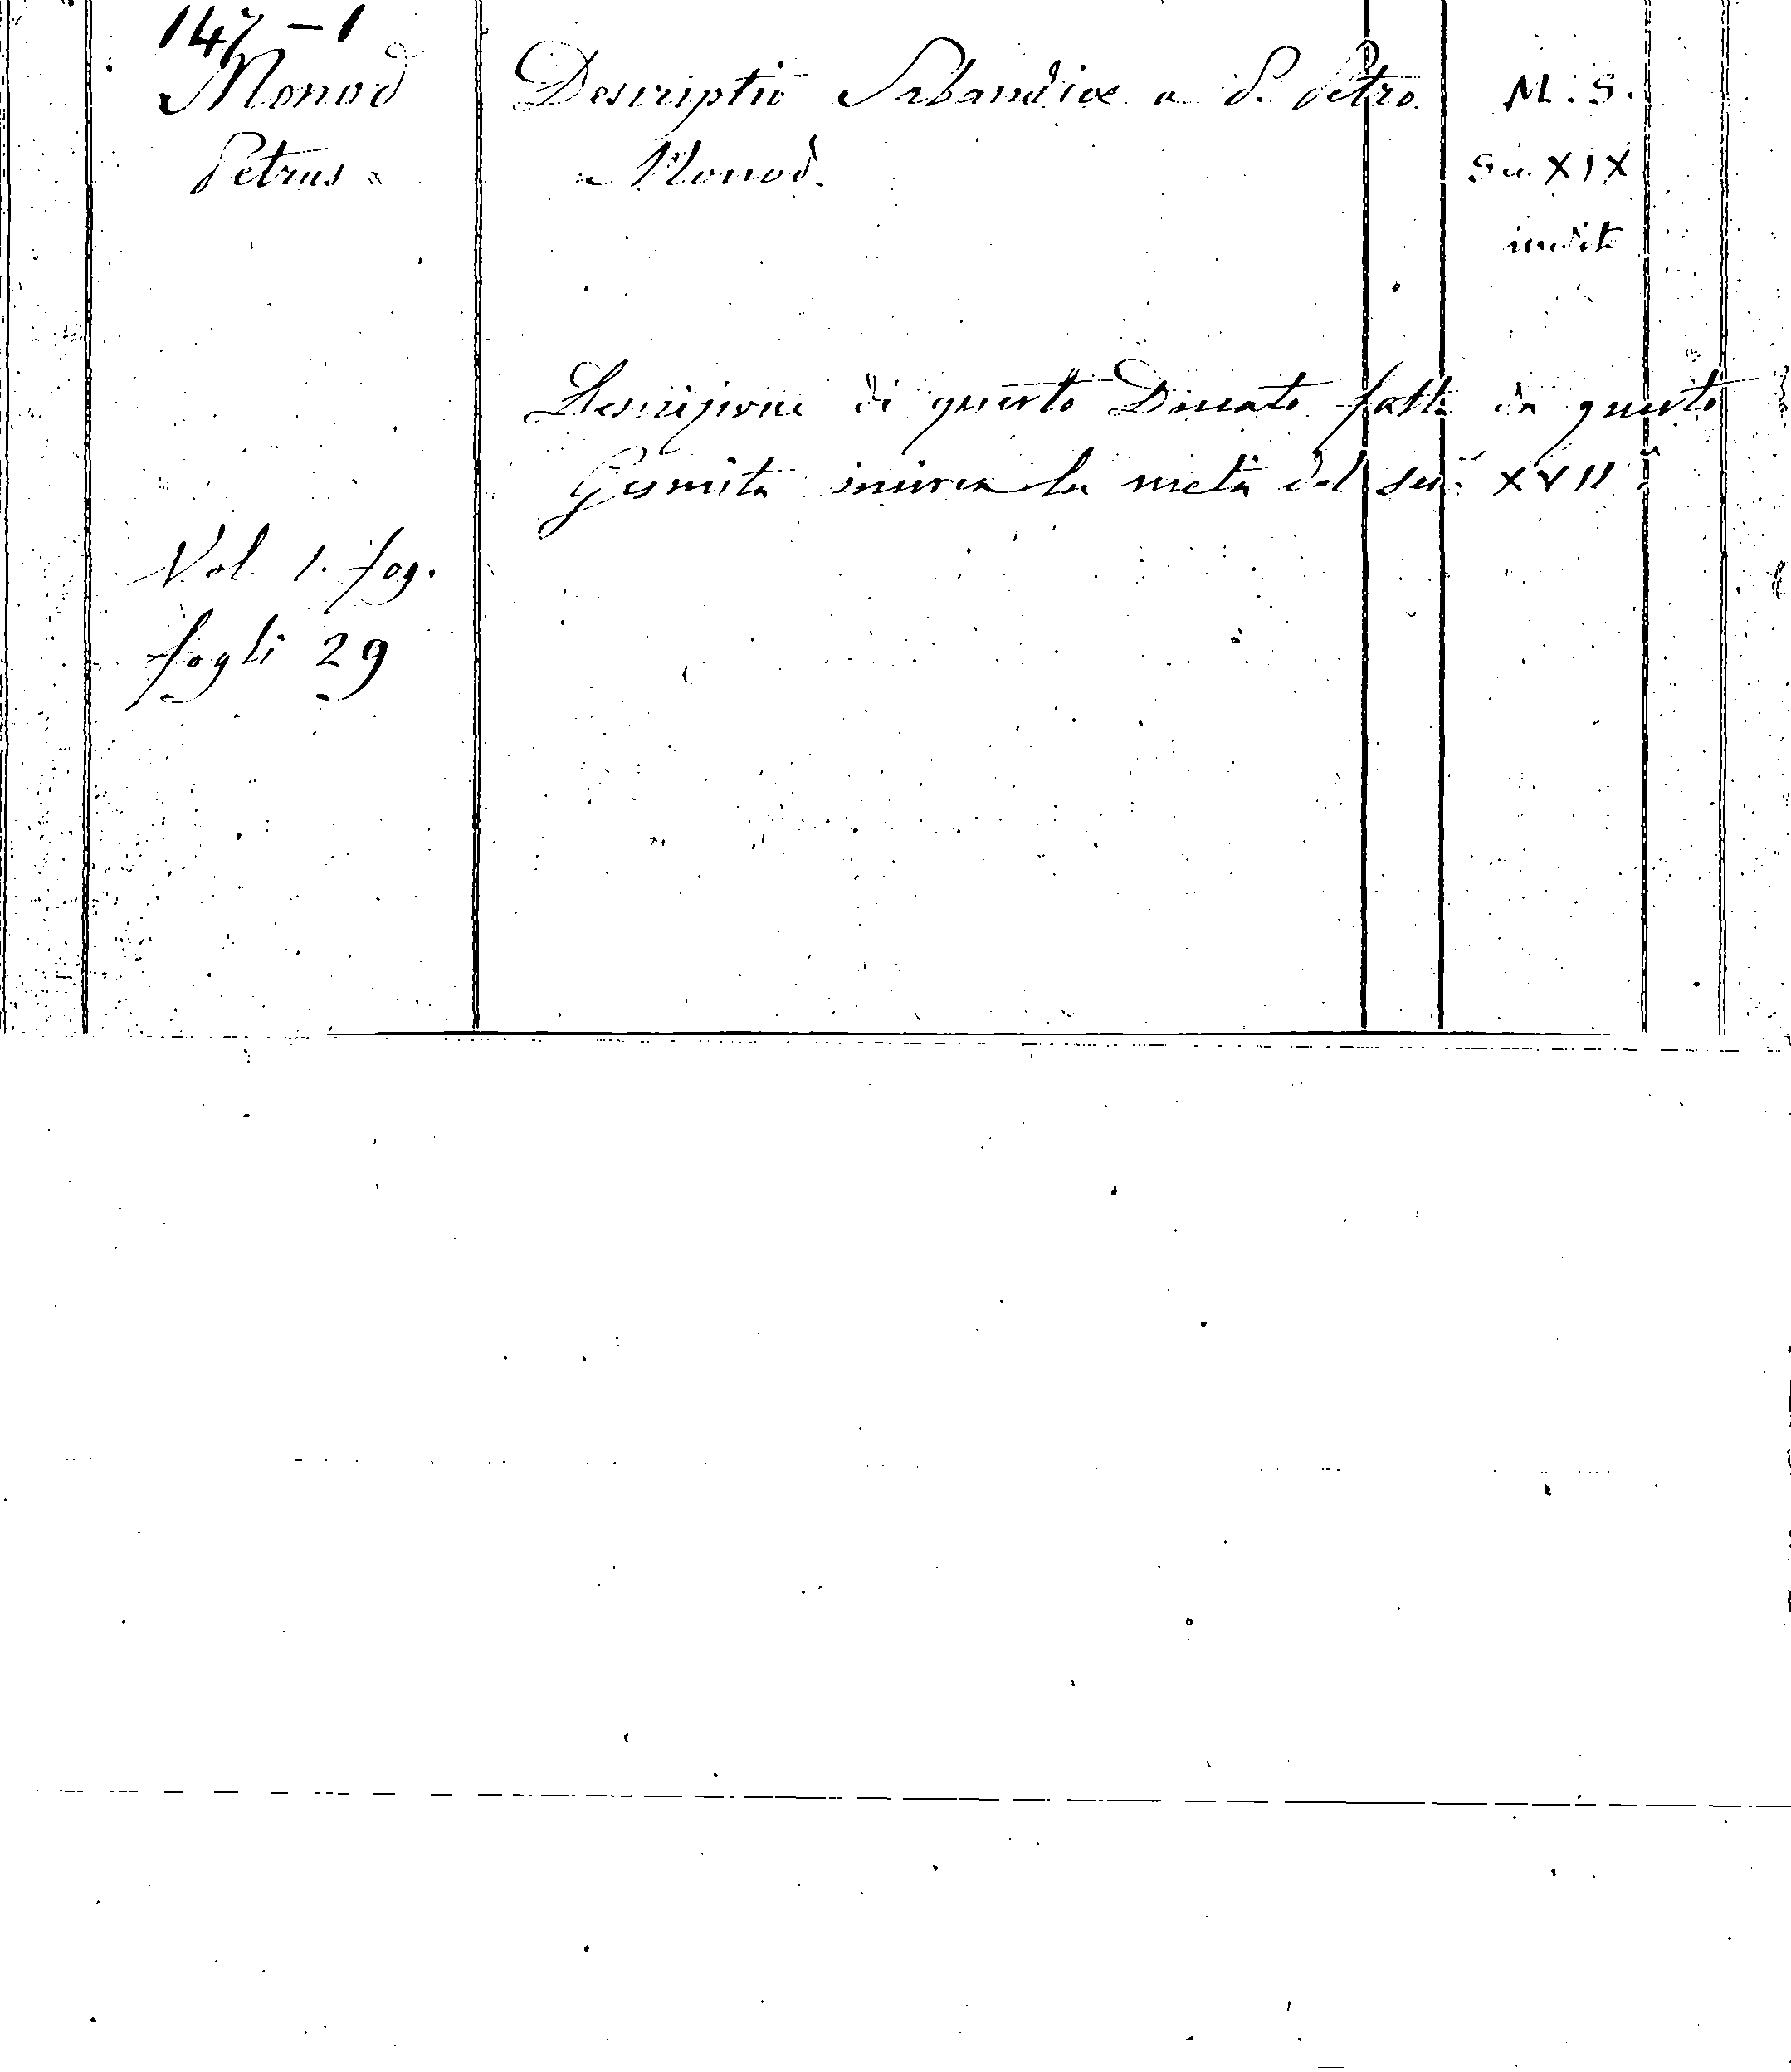 147 - 1
Monod
Petrus
Descriptio Sabaudiae a P. Petro
Monod.
M. S.
Sec. XIX
inedito
Descrizione di questo Ducato fatta da questo
Gesuita incirca la metà del sec. XVII
Vol. 1. fog.
fogli 29